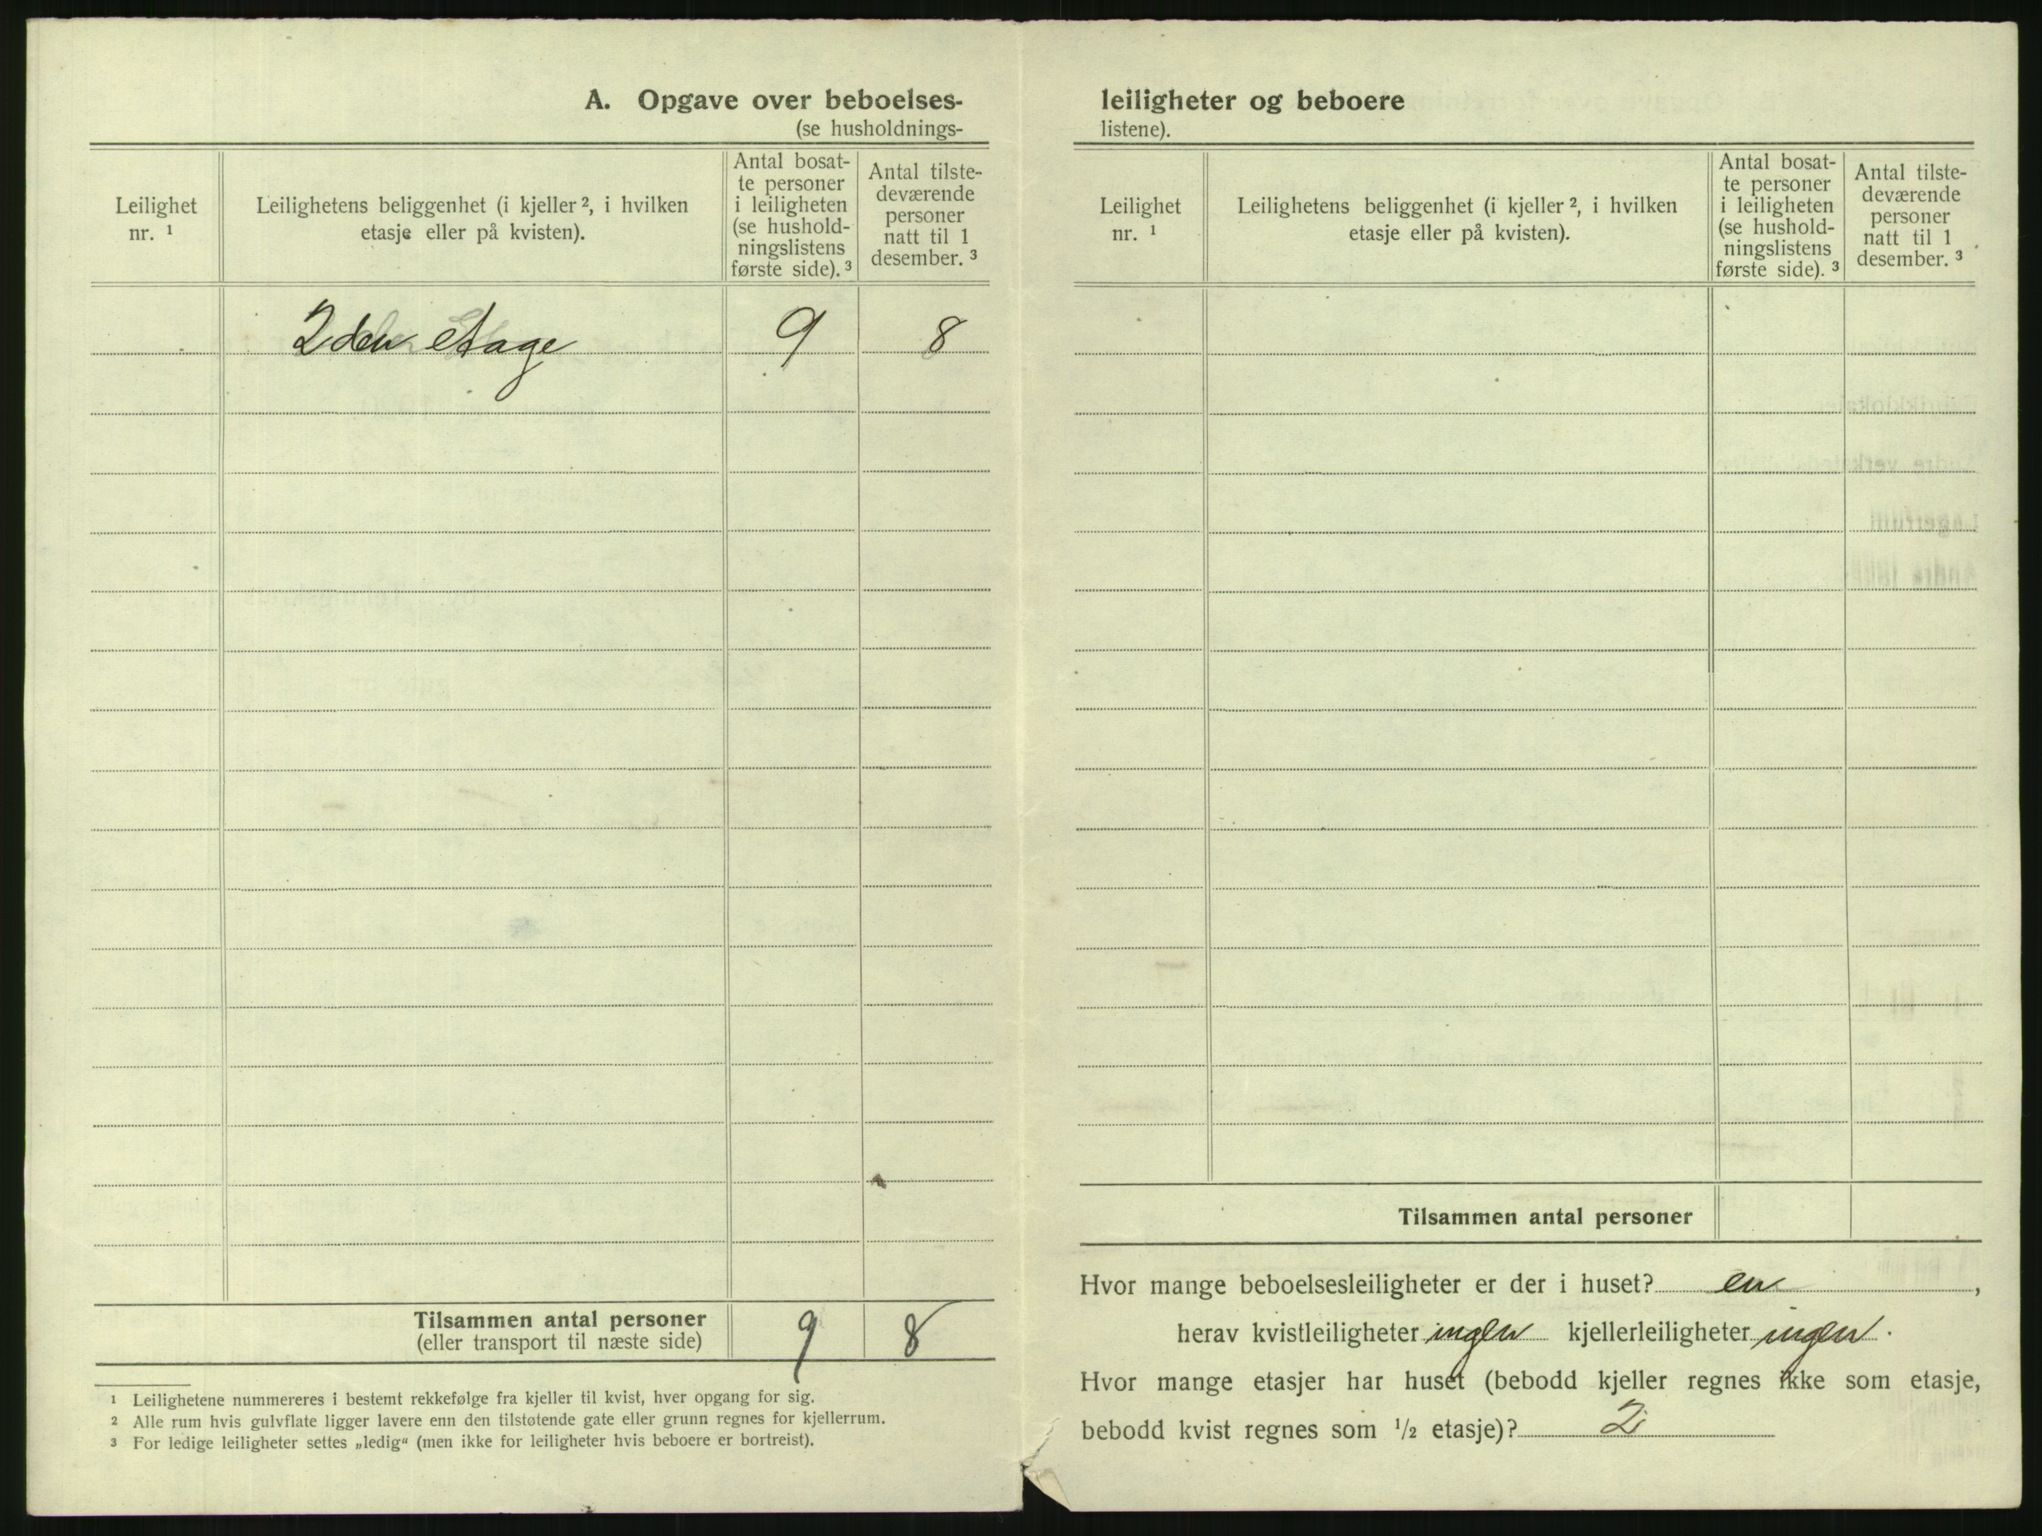 A. Opgave over beboelses-
(se husholdnings-
Leilighet
nr. 1
Leilighetens beliggenhet (i kjeller 2, i hvilken
etasje eller på kvisten).
Antal bosat-
te personer
i leiligheten
(se hushold-
ningslistens
første side). 3
Antal tilste-
deværende
personer
natt til 1
desember. 3
2den etage 9 8
Tilsammen antal personer
(eller transport til næste side)
9 8
1 Leilighetene nummereres i bestemt rekkefølge fra kjeller til kvist, hver opgang for sig.
2 Alle rum hvis gulvflate ligger lavere enn den tilstøtende gate eller grunn regnes for kjellerrum.
3 For ledige leiligheter settes „ledig“ (men ikke for leiligheter hvis beboere er bortreist).
leiligheter og beboere
listene).
Leilighet
nr. 1
Leilighetens beliggenhet (i kjeller 2, i hvilken
etasje eller på kvisten).
Antal bosat-
te personer
i leiligheten
(se hushold-
ningslistens
første side). 3
Antal tilste-
deværende
personer
natt til 1
desember. 3
Tilsammen antal personer
Hvor mange beboelsesleiligheter er der i huset? en ,
herav kvistleiligheter ingen kjellerleiligheter ingen .
Hvor mange etasjer har huset (bebodd kjeller regnes ikke som etasje,
bebodd kvist regnes som 1/2 etasje)? 2